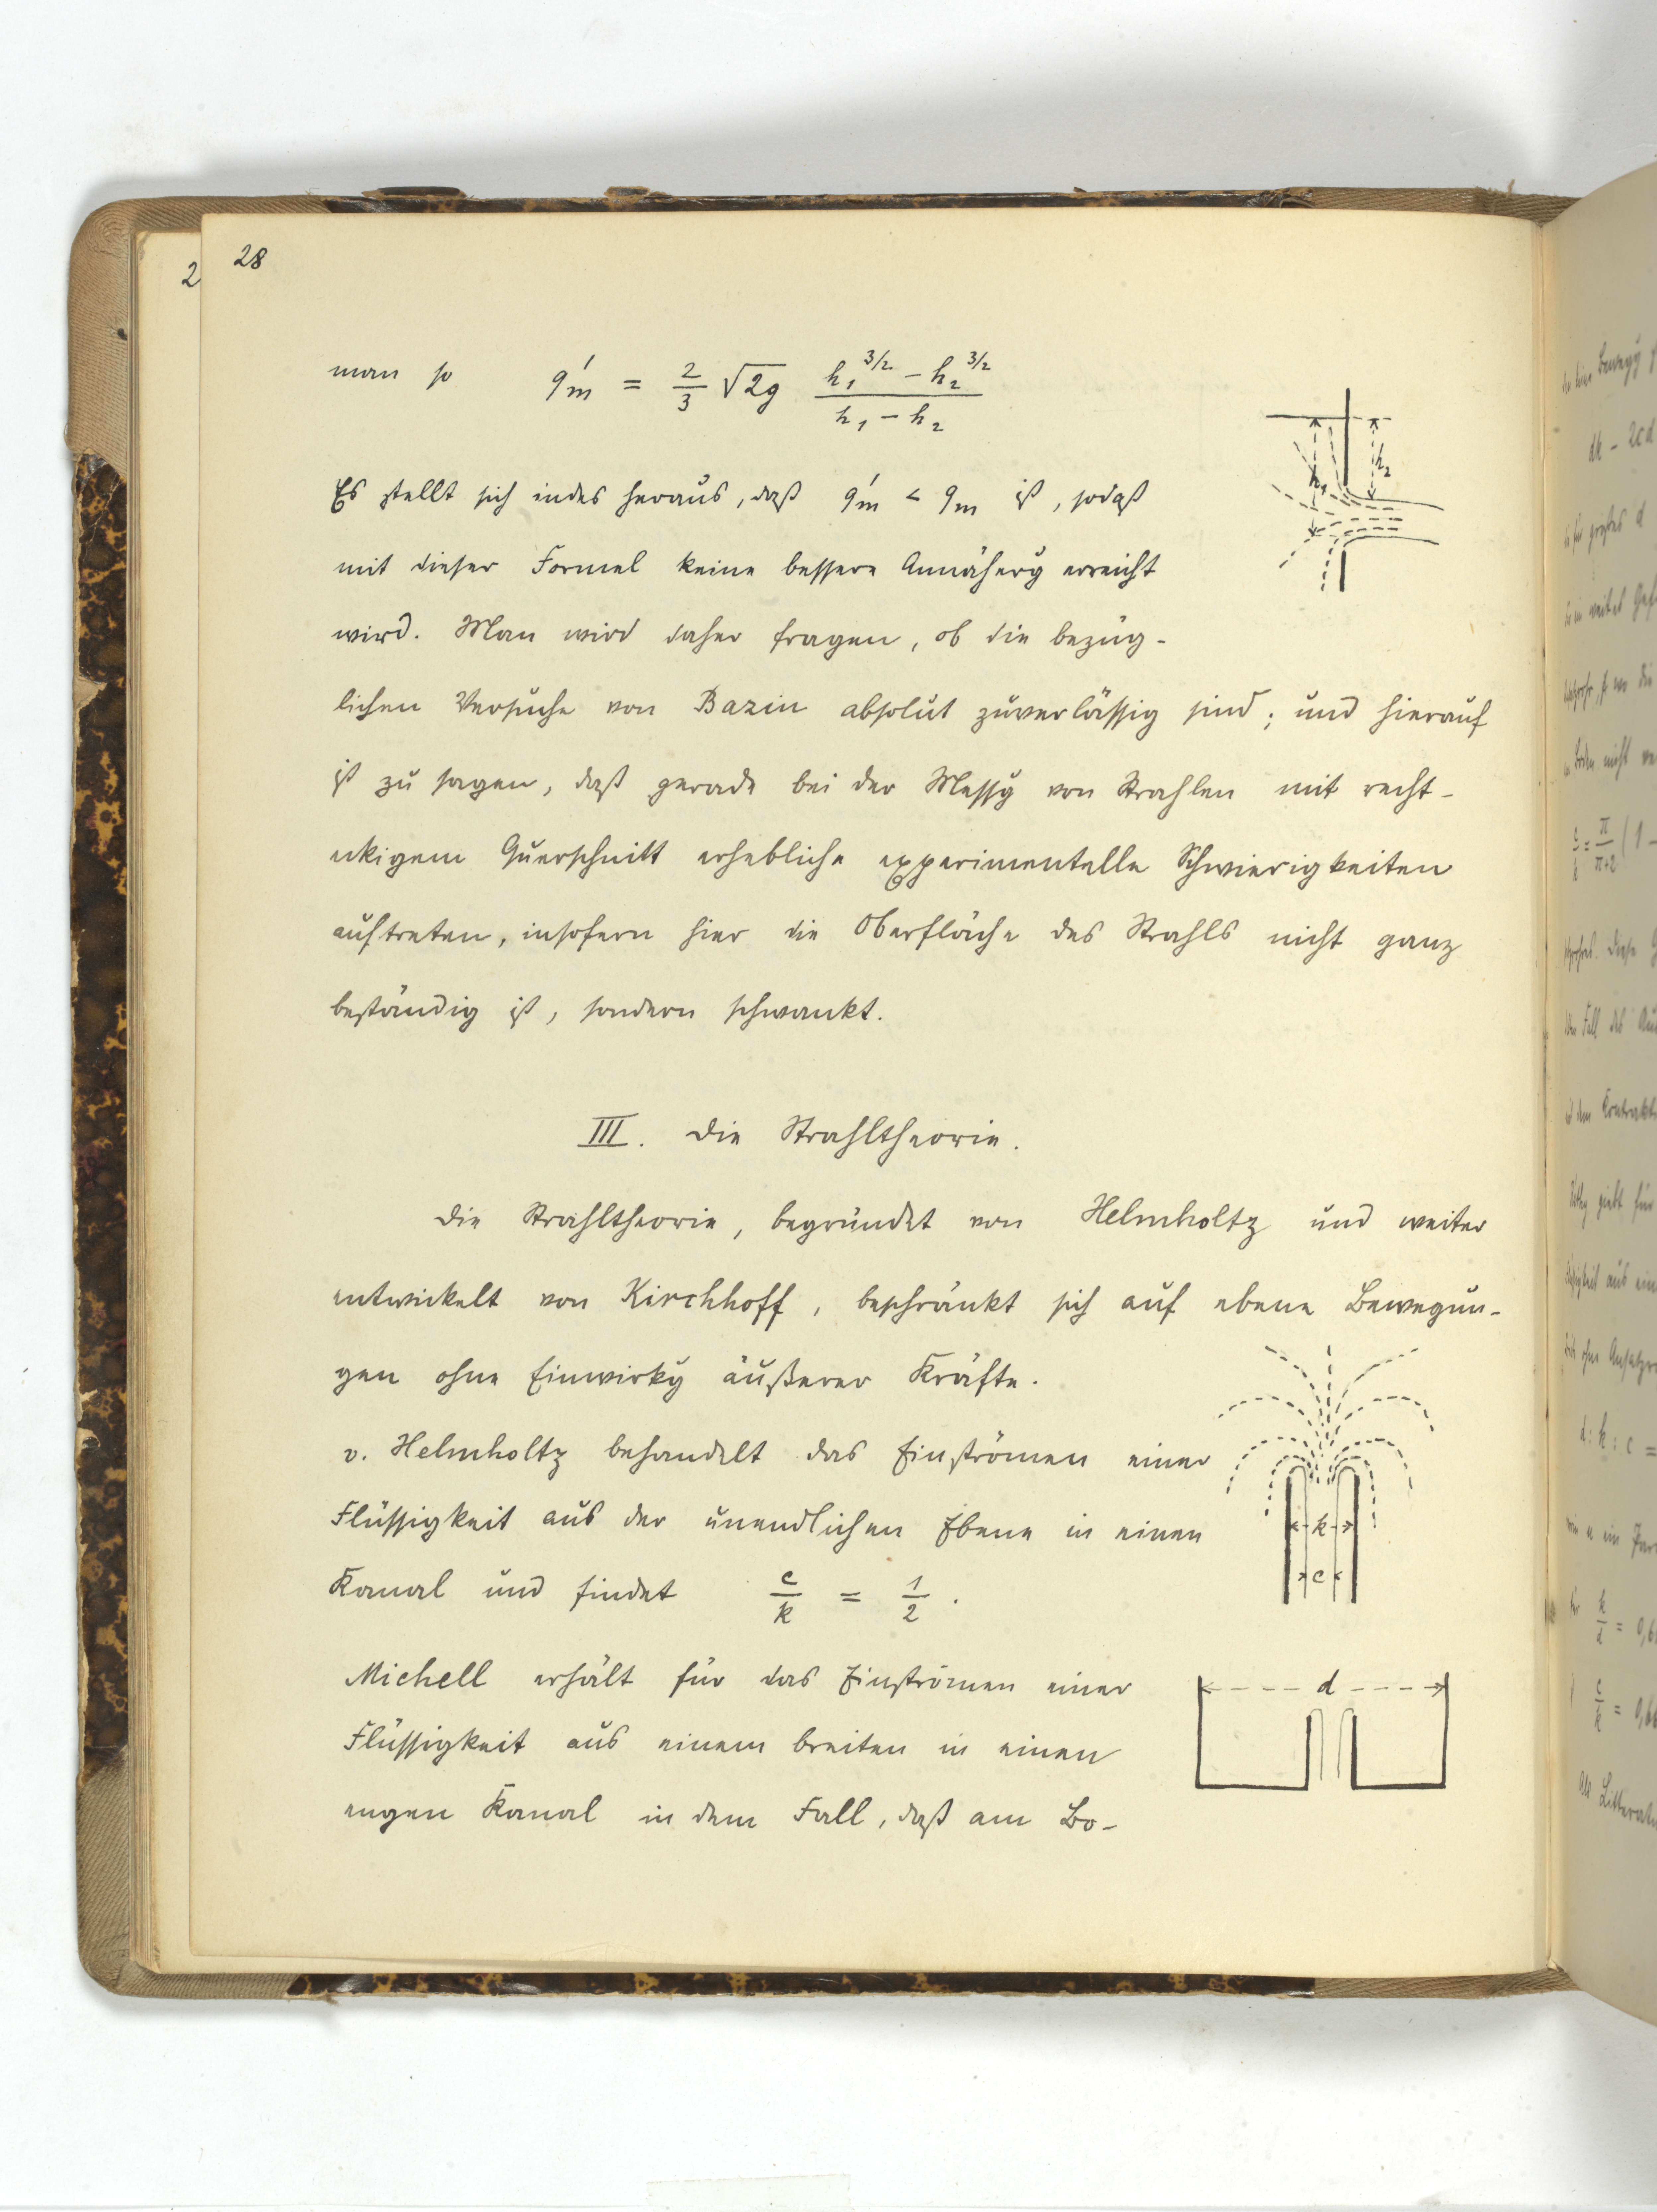 28
2
man so q'm = 2/3 √2g (h₁^3/2 − h₂^3/2)/(h₁ − h₂)
h₁ h₂
Es stellt sich indes heraus, daß q'm < qm ist, sodaß
mit dieser Formel keine bessere Annäherg erreicht
wird. Man wird daher fragen, ob die bezüg-
lichen Versuche von Bazin absolut zuverlässig sind; und hierauf
ist zu sagen, daß gerade bei der Messg von Strahlen mit recht-
eckigem Querschnitt erhebliche experimentelle Schwierigkeiten
auftreten, insofern hier die Oberfläche des Strahls nicht ganz
beständig ist, sondern schwankt.
III. Die Strahltheorie.
Die Strahltheorie, begründet von Helmholtz und weiter
entwickelt von Kirchhoff, beschränkt sich auf ebene Bewegun-
gen ohne Einwirkg äußerer Kräfte.
v. Helmholtz behandelt das Einströmen einer
Flüssigkeit aus der unendlichen Ebene in einen
k
Kanal und findet c/k = 1/2.
c
Michell erhält für das Einströmen einer
d
Flüssigkeit aus einem breiten in einen
engen Kanal in dem Fall, daß am Bo-